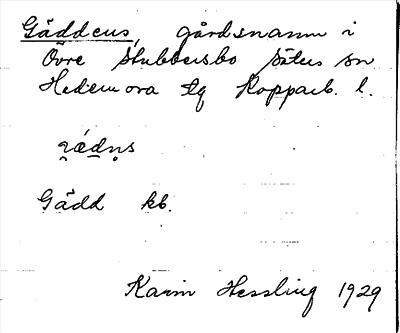 Gäddens, gårdsnamn i
Övre Stubbersbo Säters sn
Hedemora tg Kopparb. l.
Gädd kb.
Karin Hessling 1929